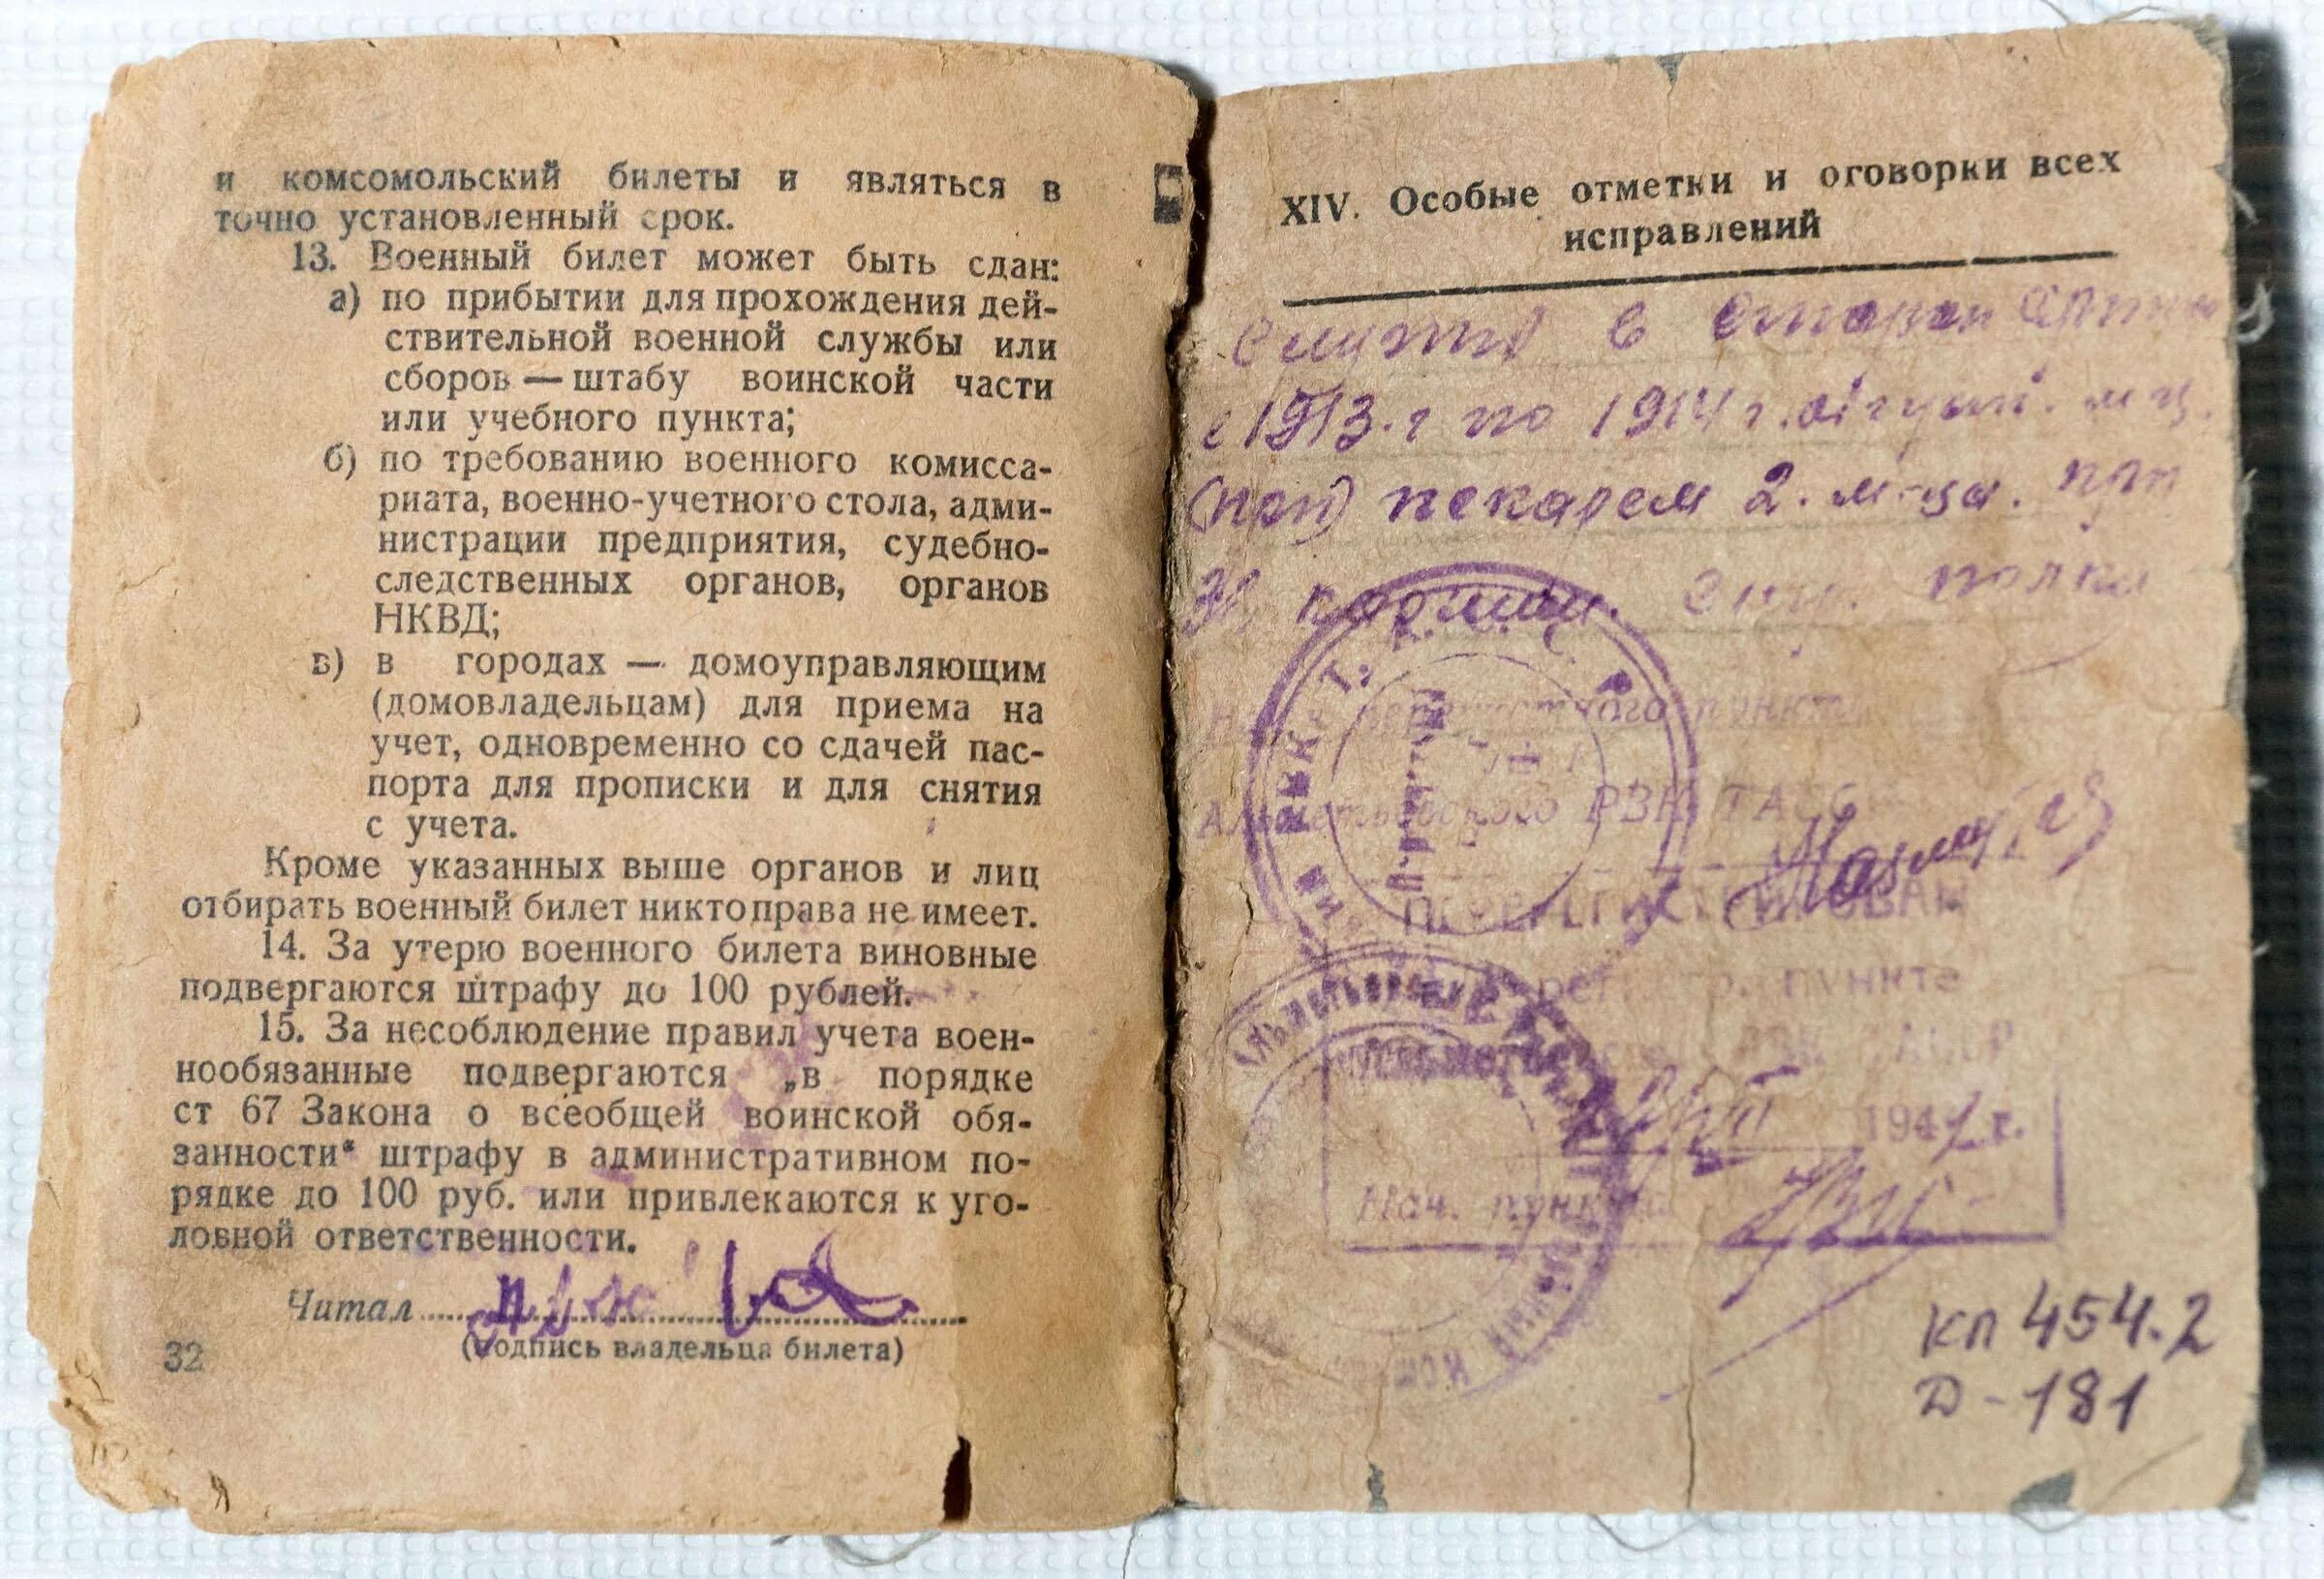 и комсомольский билеты и являться в
точно установленный срок.
13. Военный билет может быть сдан:
а) по прибытии для прохождения дей-
ствительной военной службы или
сборов — штабу воинской части
или учебного пункта;
б) по требованию военного комисса-
риата, военно-учетного стола, адми-
нистрации предприятия, судебно-
следственных органов, органов
НКВД;
в) в городах — домоуправляющим
(домовладельцам) для приема на
учет, одновременно со сдачей пас-
порта для прописки и для снятия
с учета.
Кроме указанных выше органов и лиц
отбирать военный билет никто права не имеет.
14. За утерю военного билета виновные
подвергаются штрафу до 100 рублей.
15. За несоблюдение правил учета воен-
нообязанные подвергаются „в порядке
ст 67 Закона о всеобщей воинской обя-
занности" штрафу в административном по-
рядке до 100 руб. или привлекаются к уго-
ловной ответственности.
Читал
(подпись владельца билета)
32
XIV. Особые отметки и оговорки всех
исправлений
в старой
с 1913.г по 1914 г.
пекарем 2. м-ца. при
полка
пункта
РВК ТАССР
ПЕРЕРЕГИСТРИРОВАН
пункте
194 г.
Нач. пункта
КП 454.2
Д-181